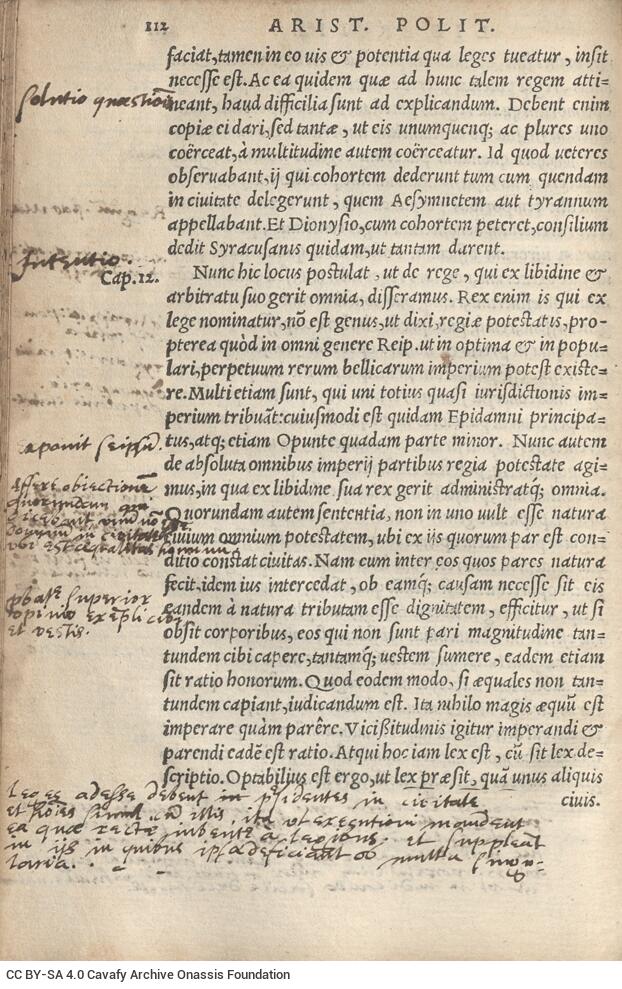 112 ARIST. POLIT.
faciat, tamen in eo uis & potentia qua leges tueatur, insit
necesse est. Ac ea quidem quæ ad hunc talem regem atti-
solutio quæstionis
neant, haud difficilia sunt ad explicandum. Debent enim
copiæ ei dari, sed tantæ, ut eis unumquenq; ac plures uno
coërceat, à multitudine autem coërceatur. Id quod ueteres
obseruabant, ij qui cohortem dederunt tum cum quendam
in ciuitate delegerunt, quem Aesymnetem aut tyrannum
appellabant. Et Dionysio, cum cohortem peteret, consilium
dedit Syracusanis quidam, ut tantam darent.
Intentio.
Cap. 12.
Nunc hic locus postulat, ut de rege, qui ex libidine &
arbitratu suo gerit omnia, disseramus. Rex enim is qui ex
lege nominatur, nõ est genus, ut dixi, regiæ potestatis, pro-
pterea quòd in omni genere Reip. ut in optima & in popu-
lari, perpetuum rerum bellicarum imperium potest existe-
re. Multi etiam sunt, qui uni totius quasi iurisdictionis im-
perium tribuãt: cuiusmodi est quidam Epidamni principa-
tus, atq; etiam Opunte quadam parte minor. Nunc autem
de absoluta omnibus imperij partibus regia potestate agi-
mus, in qua ex libidine sua rex gerit administratq; omnia.
Quorundam autem sententia, non in uno uult esse natura
ciuium omnium potestatem, ubi ex ijs quorum par est con-
ditio constat ciuitas. Nam cum inter eos quos pares natura
fecit, idem ius intercedat, ob eamq; causam necesse sit eis
eandem à natura tributam esse dignitatem, efficitur, ut si
obsit corporibus, eos qui non sunt pari magnitudine tan-
tundem cibi capere, tantamq; uestem sumere, eadem etiam
sit ratio honorum. Quod eodem modo, si æquales non tan-
tundem capiant, iudicandum est. Ita nihilo magis æquũ est
imperare quàm parêre. Vicißitudinis igitur imperandi &
parendi eadẽ est ratio. Atqui hoc iam lex est, cũ sit lex de-
scriptio. Optabilius est ergo, ut lex præsit, quã unus aliquis
ciuis.
Affert obiectionẽ
superior
et vestis.
leges adesse debent in
in civitate
ea quæ recte
et suppleant
in ijs in quibus
multa
CC BY-SA 4.0 Cavafy Archive Onassis Foundation